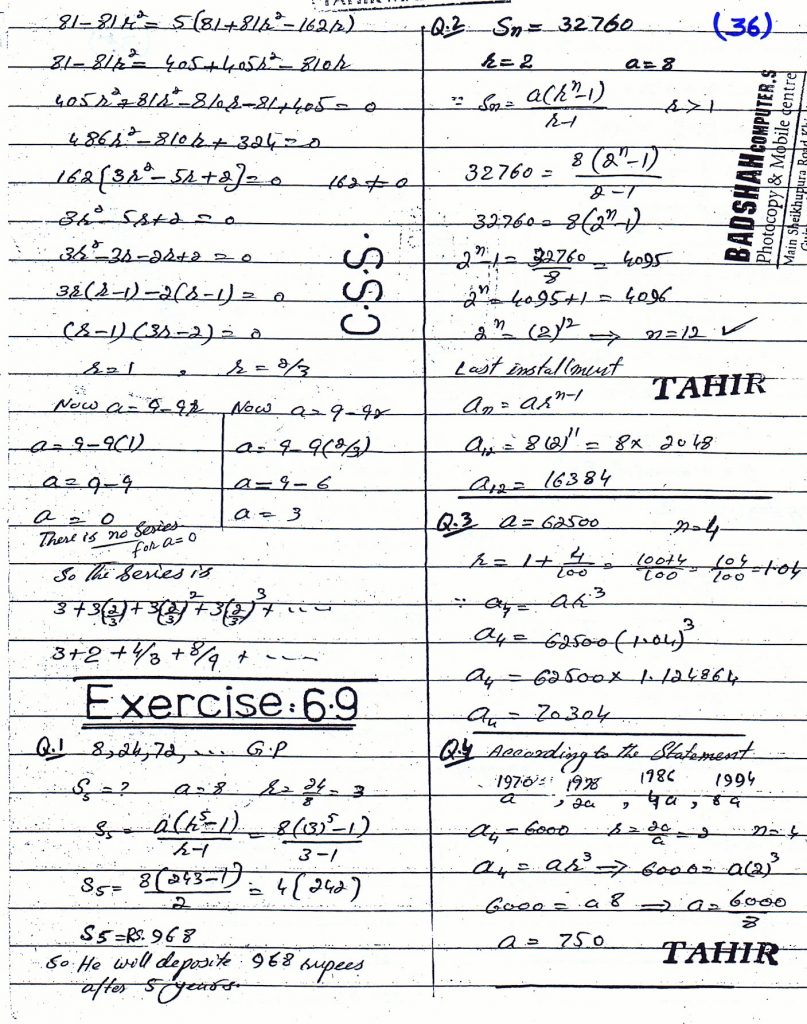 81-81r²= 5(81+81r²-162r)
81-81r²= 405+405r²-810r
405r²+81r²-810r-81+405=0
486r²-810r+324=0
162{3r²-5r+2}=0 162≠0
3r²-5r+2=0
3r²-3r-2r+2=0
3r(r-1)-2(r-1)=0
(r-1)(3r-2)=0
r=1 , r=2/3
Now a=9-9r Now a=9-9r
a=9-9(1) a=9-9(2/3)
a=9-9 a=9-6
a=0 a=3
There is no Series
for a=0
So the Series is
3+3(2/3)+3(2/3)²+3(2/3)³+....
3+2+4/3+8/9+....
Exercise:6.9
Q.1 8,24,72,... G.P
S₅=? a=8 r=24/8=3
S₅=a(r⁵-1)/r-1=8((3)⁵-1)/3-1
S₅=8(243-1)/2=4(242)
S5=RS.968
So He will deposite 968 rupees
after 5 years.
C.S.S.
Q.2 Sn=32760 (36)
r=2 a=8
∵ Sn=a(rⁿ-1)/r-1 r>1
32760=8(2ⁿ-1)/2-1
32760=8(2ⁿ-1)
2ⁿ-1=32760/8=4095
2ⁿ=4095+1=4096
2ⁿ=(2)¹² ⟹ n=12 ✓
Last installment
TAHIR
an=arⁿ⁻¹
a₁₂=8(2)¹¹=8x 2048
a₁₂=16384
Q.3 a=62500 n=4
r=1+4/100=100+4/100=104/100=1.04
∵ a₄=ar³
a₄=62500(1.04)³
a₄=62500x 1.124864
a₄=70304
Q.4 According to the Statement
1970 1978 1986 1994
a , 2a , 4a , 8a
a₄=6000 r=2a/a=2 n=4
a₄=ar³⟹6000=a(2)³
6000=a8⟹a=6000/8
a=750
TAHIR
BADSHAH COMPUTER,S
Photocopy & Mobile centre
Main Sheikhupura Road